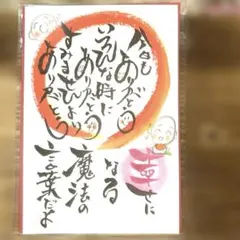 今日も
ありがとう
いろんな時に
ありがとう
すみませんより
ありがとう
幸せに
なる
魔法の
言葉だよ